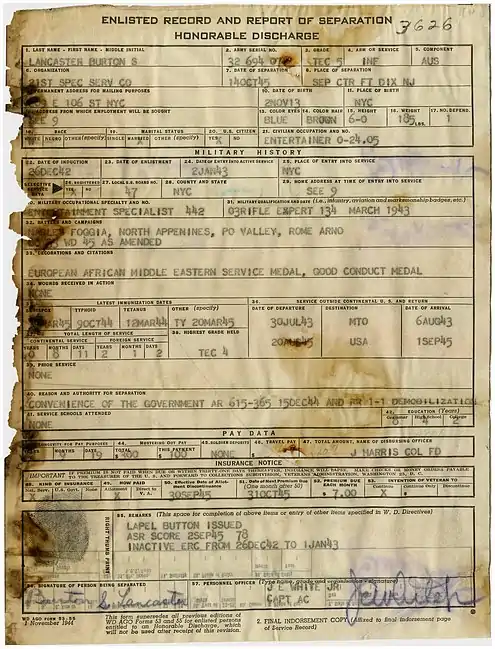 ENLISTED RECORD AND REPORT OF SEPARATION
HONORABLE DISCHARGE
3626
1. LAST NAME - FIRST NAME - MIDDLE INITIAL
2. ARMY SERIAL NO.
3. GRADE
4. ARM OR SERVICE
5. COMPONENT
LANCASTER BURTON S
32 694
TEC 5
INF
AUS
6. ORGANIZATION
7. DATE OF SEPARATION
8. PLACE OF SEPARATION
21ST SPEC SERV CO
14OCT45
SEP CTR FT DIX NJ
PERMANENT ADDRESS FOR MAILING PURPOSES
10. DATE OF BIRTH
11. PLACE OF BIRTH
E 106 ST NYC
2NOV13
NYC
ADDRESS FROM WHICH EMPLOYMENT WILL BE SOUGHT
13. COLOR EYES
14. COLOR HAIR
15. HEIGHT
16. WEIGHT
17. NO. DEPEND.
SEE 9
BLUE
BROWN
6-0
185 LBS.
1
18. RACE
19. MARITAL STATUS
20. U.S. CITIZEN
21. CIVILIAN OCCUPATION AND NO.
WHITE NEGRO OTHER (specify)
SINGLE MARRIED OTHER (specify)
YES NO
ENTERTAINER 0-24.05
MILITARY HISTORY
22. DATE OF INDUCTION
23. DATE OF ENLISTMENT
24. DATE OF ENTRY INTO ACTIVE SERVICE
25. PLACE OF ENTRY INTO SERVICE
26DEC42
2JAN43
NYC
26. REGISTERED
27. LOCAL S.S. BOARD NO.
28. COUNTY AND STATE
29. HOME ADDRESS AT TIME OF ENTRY INTO SERVICE
47
NYC
SEE 9
30. MILITARY OCCUPATIONAL SPECIALTY AND NO.
31. MILITARY QUALIFICATION AND DATE (i.e., infantry, aviation and marksmanship badges, etc.)
ENTERTAINMENT SPECIALIST 442
03RIFLE EXPERT 134 MARCH 1943
32. BATTLES AND CAMPAIGNS
NAPLES FOGGIA, NORTH APPENINES, PO VALLEY, ROME ARNO
WD 45 AS AMENDED
33. DECORATIONS AND CITATIONS
EUROPEAN AFRICAN MIDDLE EASTERN SERVICE MEDAL, GOOD CONDUCT MEDAL
34. WOUNDS RECEIVED IN ACTION
NONE
35. LATEST IMMUNIZATION DATES
36. SERVICE OUTSIDE CONTINENTAL U.S. AND RETURN
SMALLPOX
TYPHOID
TETANUS
OTHER (specify)
DATE OF DEPARTURE
DESTINATION
DATE OF ARRIVAL
MAR45
9OCT44
12MAR44
TY 20MAR45
30JUL43
MTO
6AUG43
37. TOTAL LENGTH OF SERVICE
38. HIGHEST GRADE HELD
CONTINENTAL SERVICE
FOREIGN SERVICE
20AUG45
USA
1SEP45
YEARS MONTHS DAYS YEARS MONTHS DAYS
0 8 11 2 1 2
TEC 4
39. PRIOR SERVICE
NONE
40. REASON AND AUTHORITY FOR SEPARATION
CONVENIENCE OF THE GOVERNMENT AR 615-365 15DEC44 AND RR 1-1 DEMOBILIZATION
41. SERVICE SCHOOLS ATTENDED
42. EDUCATION (Years)
NONE
Grammar High School College
8 4 2
PAY DATA
43. LONGEVITY FOR PAY PURPOSES
44. MUSTERING OUT PAY
45. SOLDIER DEPOSITS
46. TRAVEL PAY
47. TOTAL AMOUNT, NAME OF DISBURSING OFFICER
YEARS MONTHS DAYS TOTAL THIS PAYMENT
9 19
300
100
NONE
J HARRIS COL FD
INSURANCE NOTICE
IMPORTANT
48. KIND OF INSURANCE
49. HOW PAID
50. Effective Date of Allotment Discontinuance
51. Date of Next Premium Due (One month after 50)
52. PREMIUM DUE EACH MONTH
53. INTENTION OF VETERAN TO
X
30SEP45
31OCT45
7.00
X
RIGHT THUMB PRINT
55. REMARKS (This space for completion of above items or entry of other items specified in W. D. Directives)
LAPEL BUTTON ISSUED
ASR SCORE 2SEP45 78
INACTIVE ERC FROM 26DEC42 TO 1JAN43
56. SIGNATURE OF PERSON BEING SEPARATED
57. PERSONNEL OFFICER (Type name, grade and organization - signature)
Burton S. Lancaster
J E WHITE JR
CAPT AC
WD AGO FORM 53-55
1 November 1944
This form supersedes all previous editions of
WD AGO Forms 53 and 55 for enlisted persons
entitled to an Honorable Discharge, which
will not be used after receipt of this revision.
2. FINAL INDORSEMENT COPY (Affixed to final Indorsement page
of Service Record)